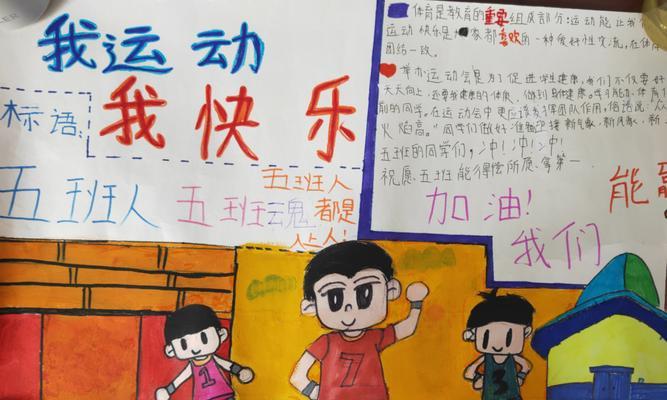 我运动
标语:
我快乐
五班人
五班魂
五班人
都是
人上人!
体育是教育的重要组成部分:运动能让我
运动快乐是大家都喜欢的一种良好性交流,在体
团结一致。
举办运动会是为了促进学生健康,我们不仅要好
天天向上,还要我健康的体康,做到身体健康。学习能力、体育
前的同学。在运动会中更应该发挥团队作用,俗话说:人
火焰高。"同学们做好准备迎接新气象、新风象、新
五班的同学们,冲!冲!冲!
祝愿、五班能得偿所愿、拿第一
加油!
我们
能
1
7
3